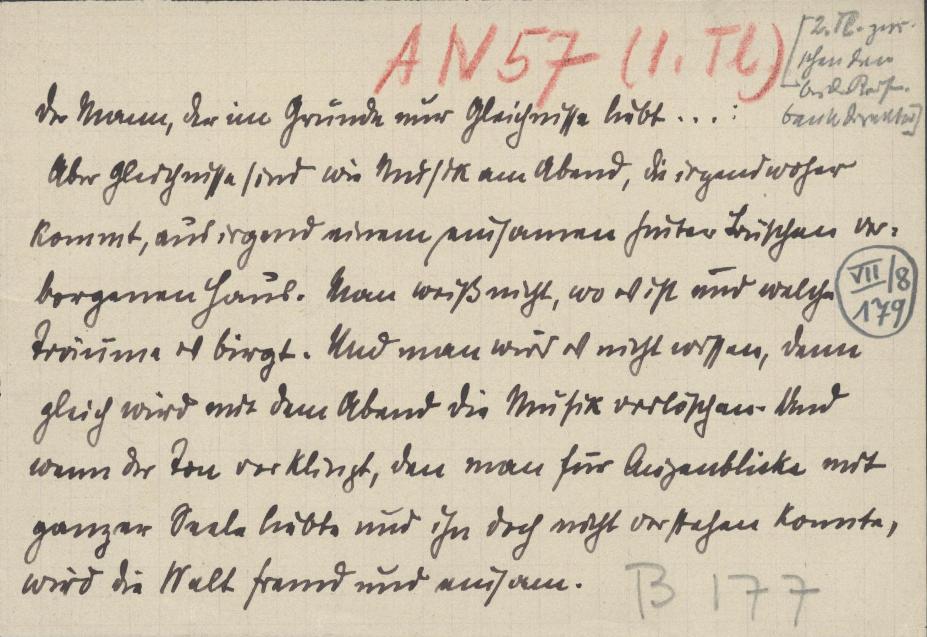 AN 57 (1. Tl)
[2. Tl. zwi-
schen den
beid.
bankdirektor]
Der Mann, der im Grunde nur Gleichnisse liebt...:
Aber Gleichnisse sind wie Musik am Abend, die irgendwoher
kommt, aus irgend einem einsamen hinter Büschen ver-
borgenen Haus. Man weiß nicht, wo es ist und welche
VII/8
179
Träume es birgt. Und man wird es nicht wissen, denn
gleich wird mit dem Abend die Musik verlöschen. Und
wenn der Ton verklingt, den man für Augenblicke mit
ganzer Seele liebte und ihn doch nicht verstehen konnte,
wird die Welt fremd und einsam.
B 177